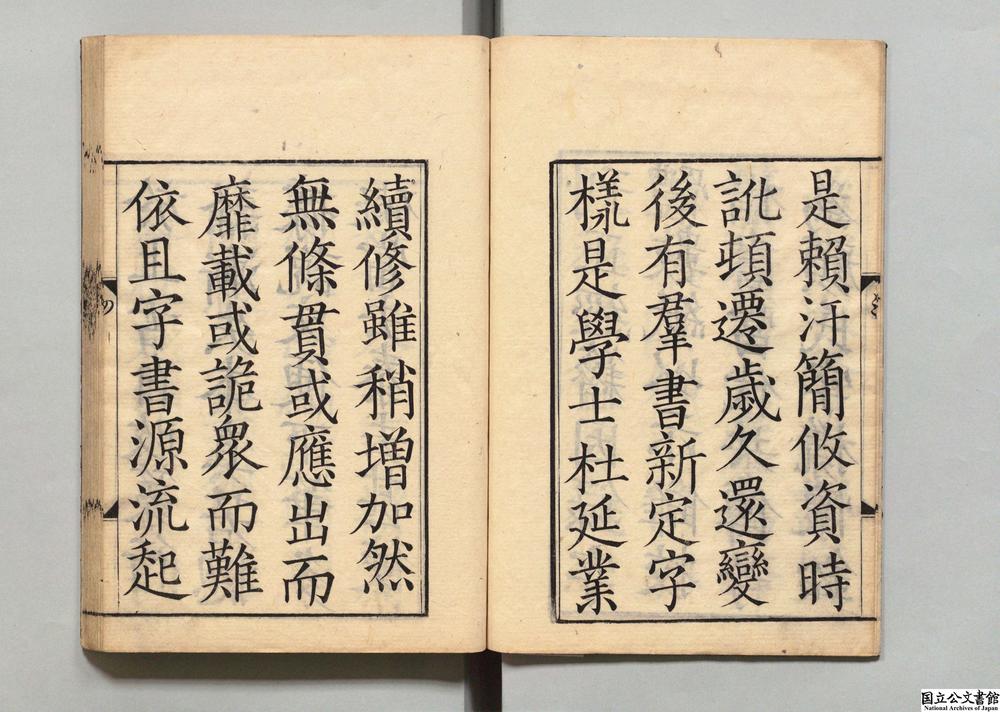 是賴汗簡攸資時
訛頓遷歲久還變
後有羣書新定字
樣是學士杜延業
續修雖稍增加然
無條貫或應出而
靡載或詭眾而難
依且字書源流起
国立公文書館
National Archives of Japan